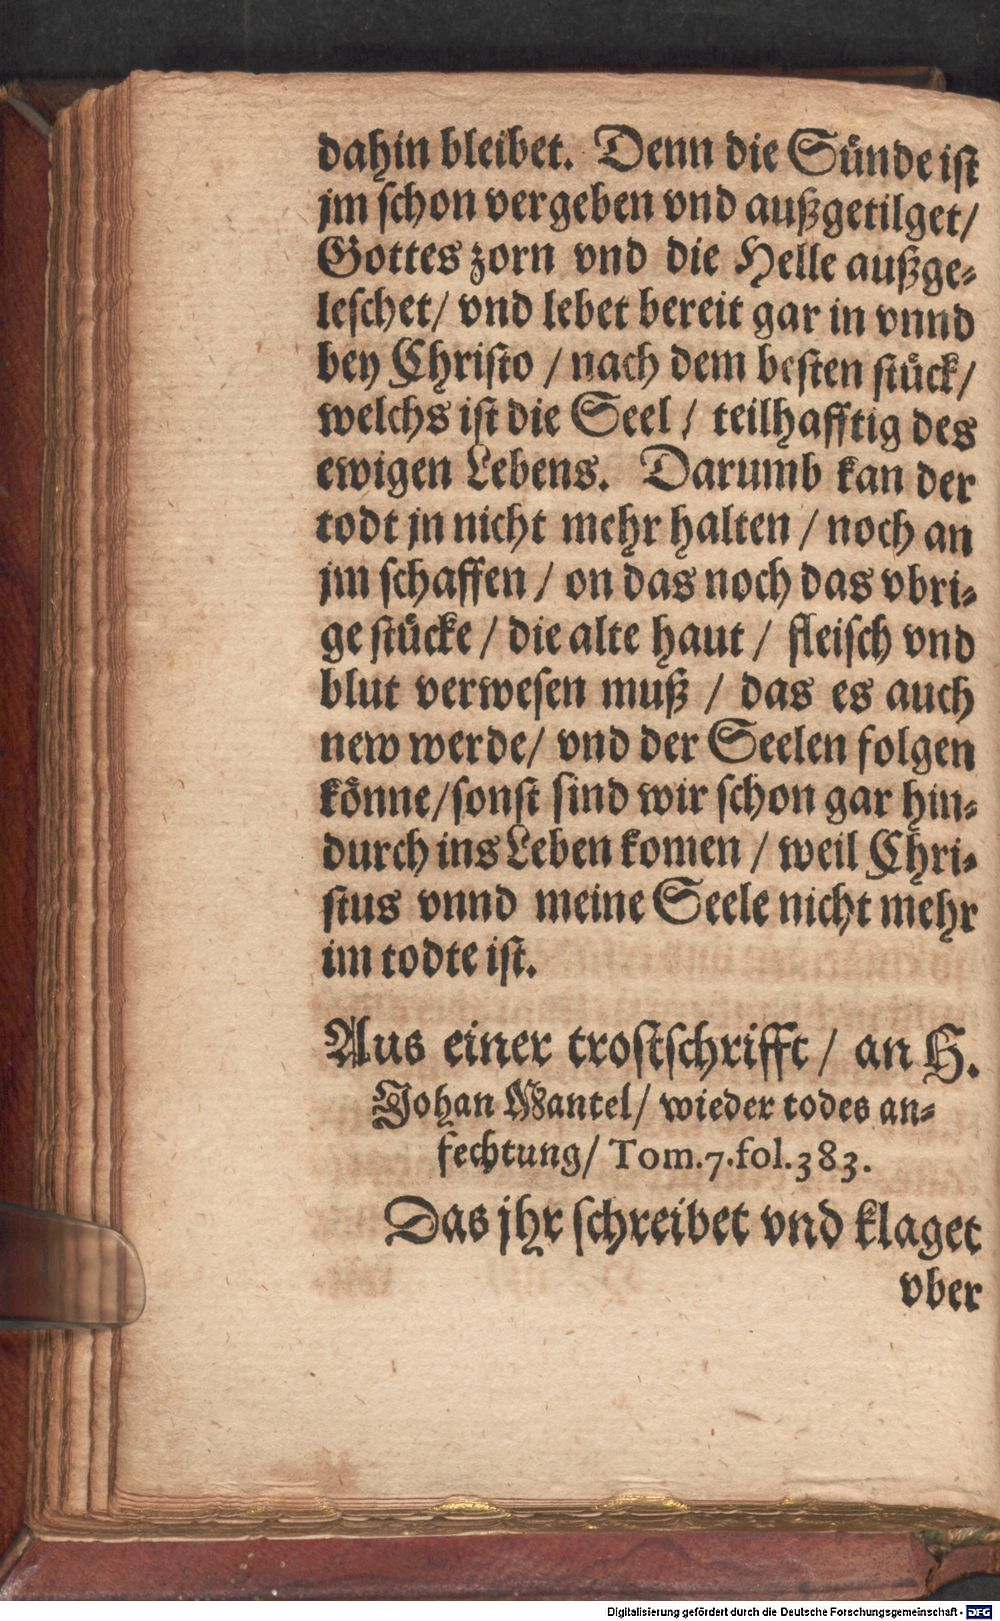 dahin bleibet. Denn die Sünde ist
jm schon vergeben vnd außgetilget/
Gottes zorn vnd die Helle außge-
leschet/ vnd lebet bereit gar in vnnd
bey Christo / nach dem besten stück/
welchs ist die Seel / teilhafftig des
ewigen Lebens. Darumb kan der
todt jn nicht mehr halten / noch an
jm schaffen / on das noch das vbri-
ge stücke / die alte haut / fleisch vnd
blut verwesen muß / das es auch
new werde/ vnd der Seelen folgen
könne/sonst sind wir schon gar hin-
durch ins Leben komen / weil Chri-
stus vnnd meine Seele nicht mehr
im todte ist.
Aus einer trostschrifft / an H.
Johan Mantel/ wieder todes an-
fechtung/ Tom.7.fol.383.
Das jhr schreibet vnd klaget
vber
Digitalisierung gefördert durch die Deutsche Forschungsgemeinschaft - DFG